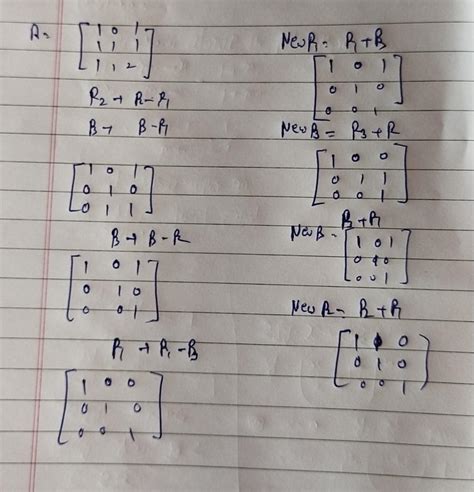 A= [1 0 1
1 1 1
1 1 2]
R2 → R-R1
R → R-R1
[1 0 1
0 1 0
0 1 1]
R → R-R
[1 0 1
0 1 0
0 0 1]
R1 → R1-R3
[1 0 0
0 1 0
0 0 1]
New R1= R1+R
[1 0 1
0 1 0
0 0 1]
New R= R3+R
[1 0 0
0 1 1
0 0 1]
R+R1
New R=
[1 0 1
0 1 0
0 0 1]
New R= R+R1
[1 0 0
0 1 0
0 0 1]